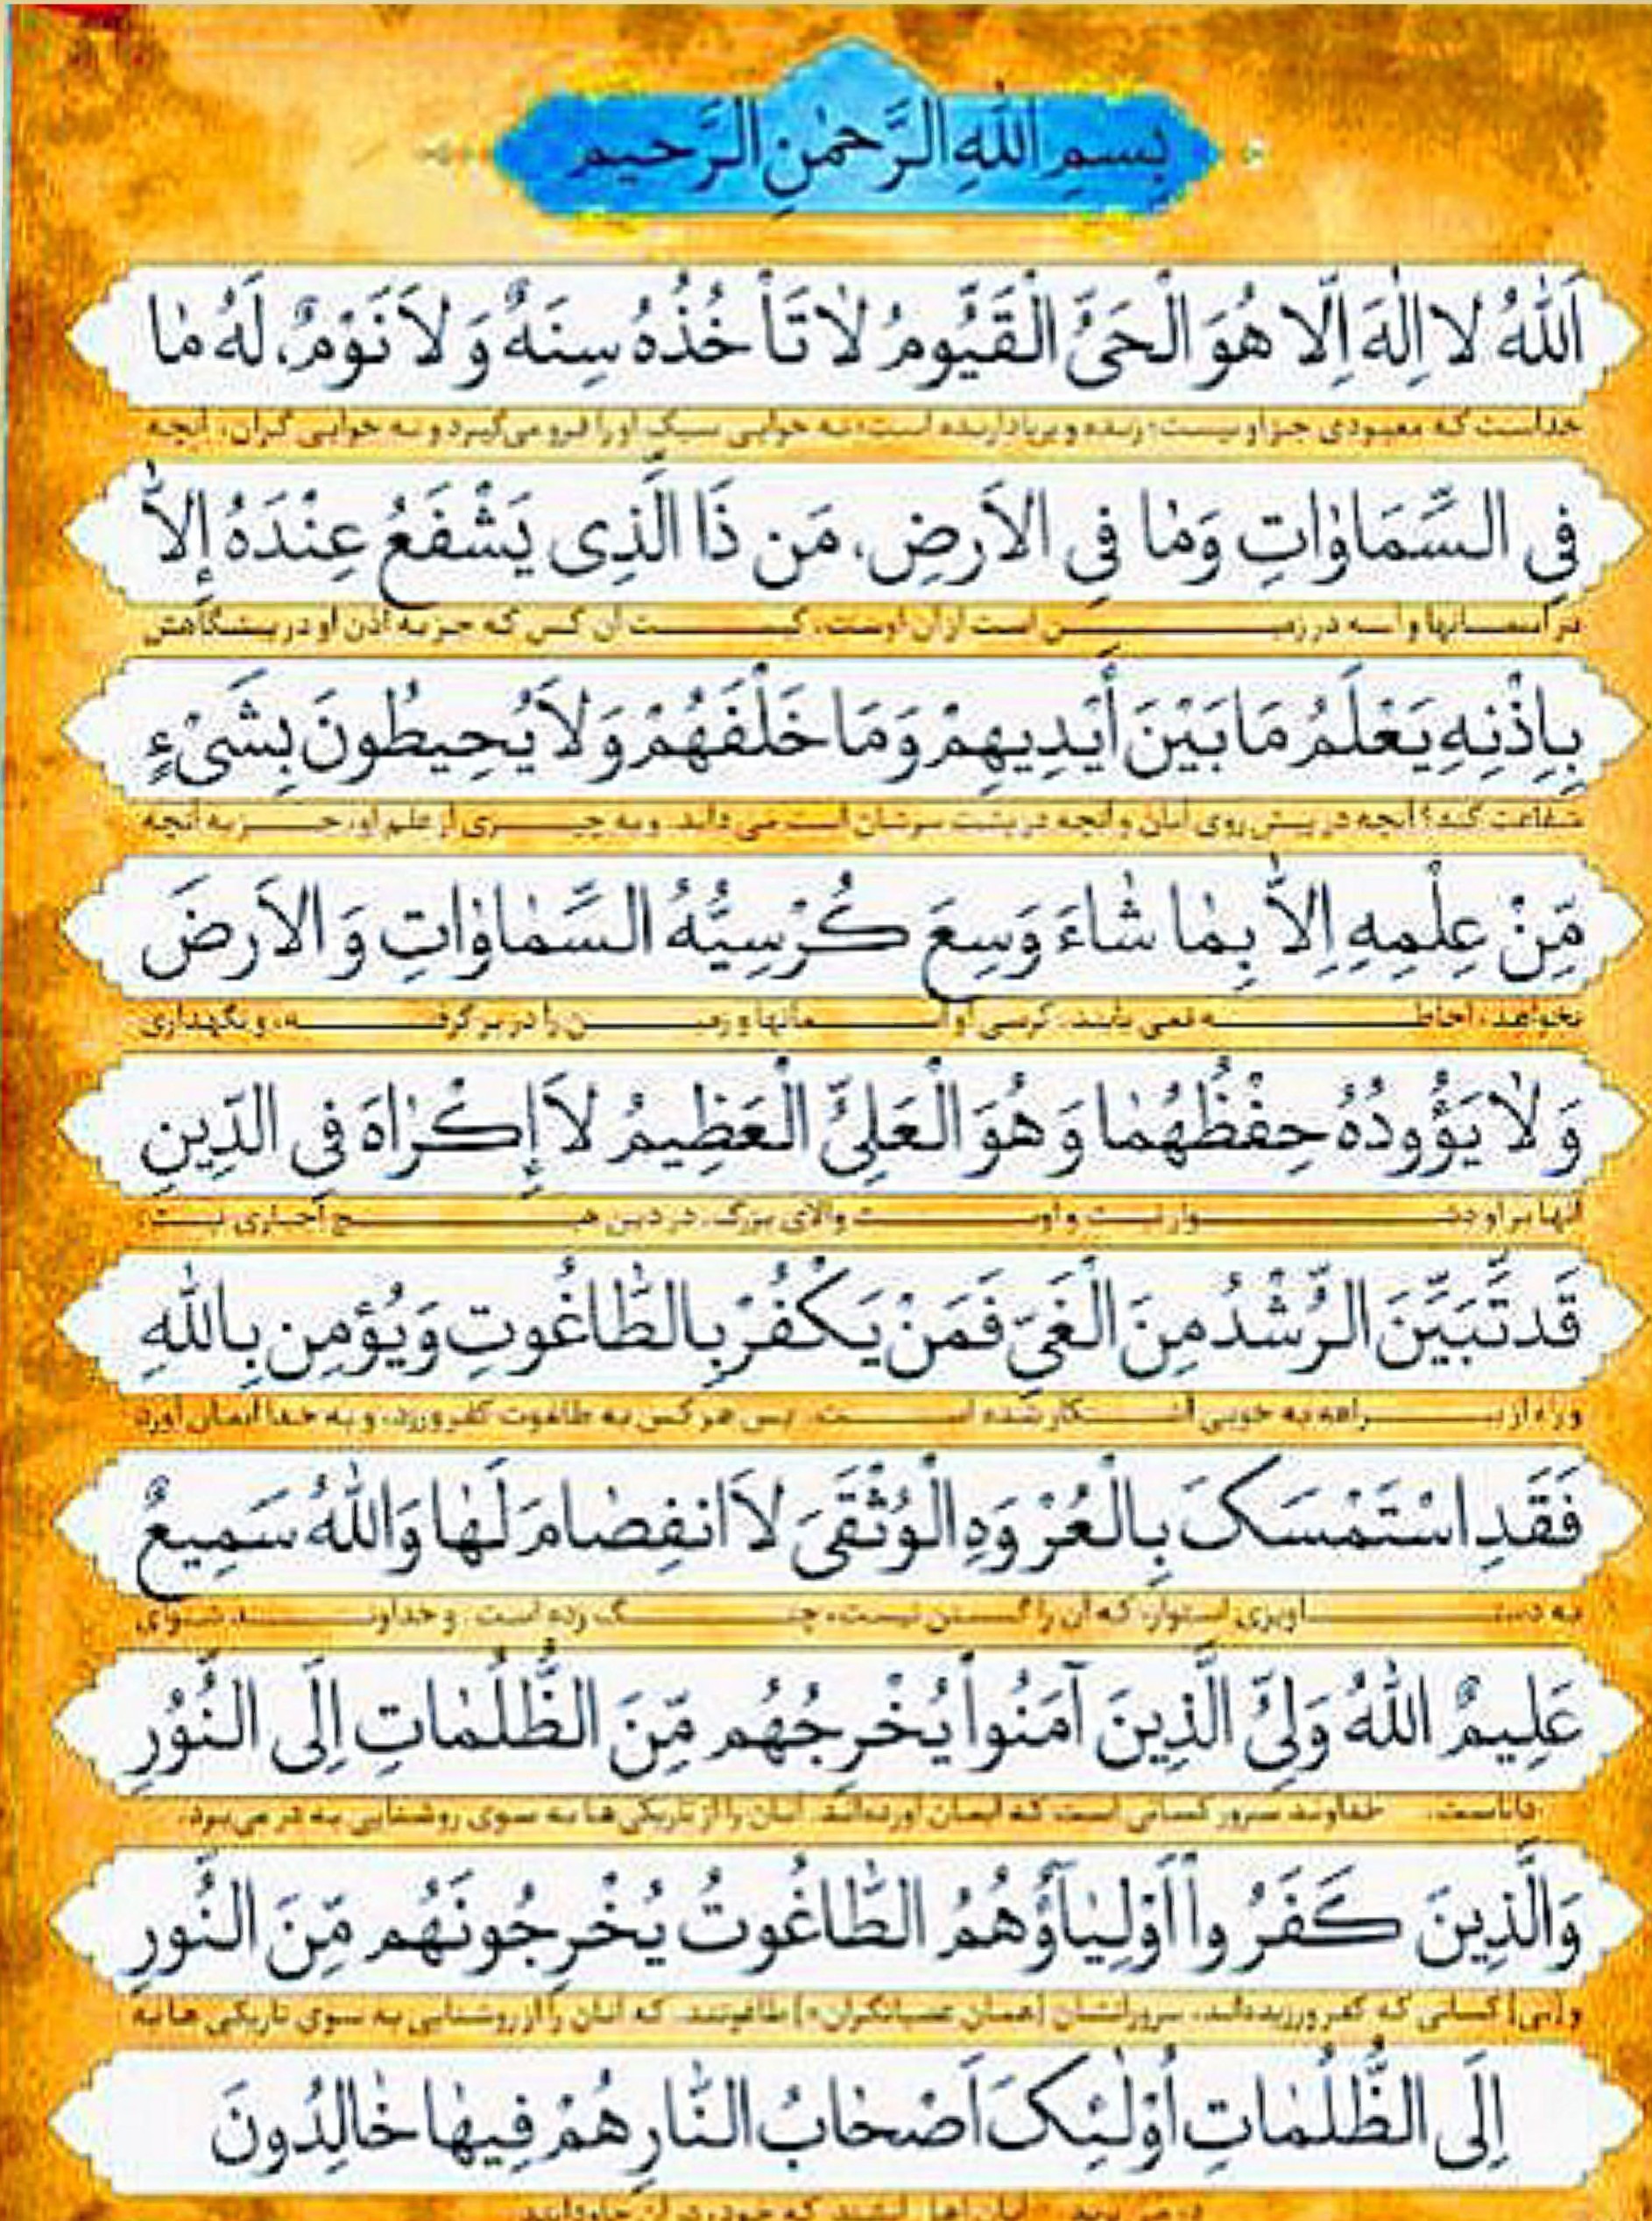 بِسمِ اللهِ الرَّحمٰنِ الرَّحیم
اَللّٰهُ لا اِلٰهَ اِلّا هُوَ الْحَیُّ الْقَیُّومُ لاٰ تَأْخُذُهُ سِنَهٌ وَ لاَ نَوْمٌ، لَهُ مٰا
خداست که معبودی جز او نیست؛ زنده و برپادارنده است؛ نه خوابی سبک او را فرو می‌گیرد و نه خوابی گران. آنچه
فِی السَّمَاوٰاتِ وَمٰا فِی الاَرضِ، مَن ذَا الَّذِی یَشْفَعُ عِنْدَهُ إِلاّٰ
در آسمانها و آنچه در زمین است از آن اوست. کیست آن کس که جز به اذن او در پیشگاهش
بِاِذْنِهِ یَعْلَمُ مَا بَیْنَ أَیْدِیهِمْ وَمَا خَلْفَهُمْ وَلاَ یُحِیطُونَ بِشَیْءٍ
شفاعت کند؟ آنچه در پیش روی آنان و آنچه در پشت سرشان است می داند. و به چیزی از علم او، جز به آنچه
مِّنْ عِلْمِهِ اِلاّٰ بِمٰا شٰاءَ وَسِعَ کُرْسِیُّهُ السَّمٰاوٰاتِ وَ الاَرضَ
بخواهد، احاطه نمی یابند. کرسی او آسمانها و زمین را در بر گرفته، و نگهداری
وَ لاٰ یَؤُودُهُ حِفْظُهُمٰا وَ هُوَ الْعَلِیُّ الْعَظِیمُ لاَ إِکْرٰاهَ فِی الدِّینِ
آنها بر او دشوار نیست و اوست والای بزرگ. در دین هیچ اجباری نیست؛
قَد تَّبَیَّنَ الرُّشْدُ مِنَ الْغَیِّ فَمَنْ یَکْفُرْ بِالطّٰاغُوتِ وَیُؤمِن بِاللهِ
و راه از بیراهه به خوبی آشکار شده است. پس هر کس به طاغوت کفر ورزد، و به خدا ایمان آورد
فَقَدِ اسْتَمْسَکَ بِالْعُرْوَهِ الْوُثْقَیَ لاَ انفِصٰامَ لَهٰا وَاللهُ سَمِیعٌ
به دستاویزی استوار، که آن را گسستن نیست، چنگ زده است. و خداوند شنوای
عَلِیمٌ اللهُ وَلِیُّ الَّذِینَ آمَنُواْ یُخْرِجُهُم مِّنَ الظُّلُمٰاتِ اِلَی النُّوُرِ
داناست. خداوند سرور کسانی است که ایمان آورده‌اند. آنان را از تاریکی‌ها به سوی روشنایی به در می‌برد.
وَالَّذِینَ کَفَرُواْ اَوْلِیٰآؤُهُمُ الطّٰاغُوتُ یُخْرِجُونَهُم مِّنَ النُّورِ
و[لی] کسانی که کفر ورزیده‌اند، سرورانشان [همان عصیانگران=] طاغوتند، که آنان را از روشنایی به سوی تاریکی ها به
اِلَی الظُّلُمٰاتِ اُوْلٰئِکَ اَصْحٰابُ النّٰارِ هُمْ فِیهٰا خٰالِدُونَ
در می برند. آنان اهل آتشند که خود در آن جاودانند.